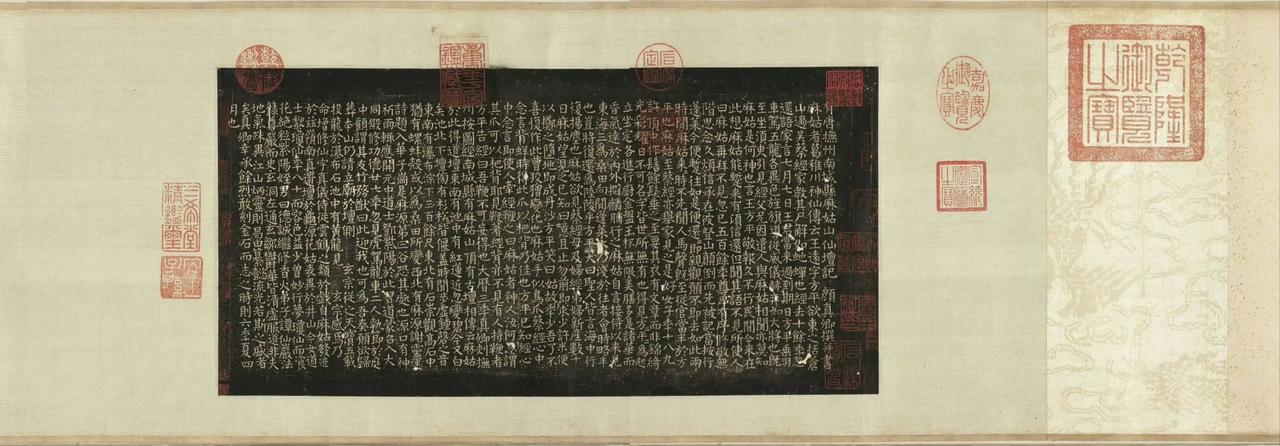 有唐撫州南城縣麻姑山仙壇記 顏真卿撰并書
麻姑者葛稚川神仙傳云王遠字方平欲東之括蒼
山過吳蔡經家教其尸解如蛇蟬也經去十餘年忽
還語家言七月七日王君當來過到期日方平乘羽
車駕五龍各異色旌旗導從威儀赫弈如大將也既
至坐須臾引見經父兄因遣人與麻姑相聞亦莫知
麻姑是何神也言王方平敬報久不行民間今來在
此想麻姑能暫來有頃信還但聞其語不見所使人
曰麻姑再拜不見忽已五百餘年尊卑有序修敬無
階思念久煩信承在彼登山顛倒而先被記當按行
蓬萊今便暫往如是便還還即親覲願不即去如此兩
時間麻姑來來時不先聞人馬聲既至從官當半於方
平也麻姑至蔡經亦舉家見之是好女子年十八九
許頂中作髻餘髮垂之至要其衣有文章而非錦綺
光彩耀日不可名字皆世所無有也得見方平方平為起
立坐定各進行廚金盤玉杯無限美膳多是諸華而
香氣達於內外擗麟脯行之麻姑自言接待以來見
東海三為桑田向間蓬萊水乃淺於往者會時略半
也豈將復還為陸陵乎方平笑曰聖人皆言海中行
復揚塵也麻姑欲見蔡經母及婦經弟婦新產數十
日麻姑望見之已知曰噫且止勿前即求少許米便
以擲之墮地即成丹沙方平笑曰姑故年少吾了不
喜復作此曹狡獪變化也麻姑手似鳥爪蔡經心中
念言背蛘時得此爪以杷背乃佳也方平已知經心
中念言即使人牽經鞭之曰麻姑者神人汝何忽謂
其爪可以杷背耶見鞭著經背亦不見有人持鞭者
方平告經曰吾鞭不可妄得也大曆三年真卿刺撫
州按圖經南城縣有麻姑山頂有古壇相傳云麻姑
於此得道壇東南有池中有紅蓮近忽變碧今又白
矣池北下壇傍有杉松皆偃蓋時聞步虛鐘磬之音
東南有瀑布淙下三百餘尺東北有石崇觀高石中
猶有螺蚌殼或以為桑田所變西北有麻源謝靈運
詩題入華子崗是麻源第三谷恐其處也源口有神
祈雨輒應開元中道士鄧紫陽於此習道蒙召入大
同殿修功德廿七年忽見虎駕龍車二人執節於庭
中顧謂其友竹務猷曰此迎我也可為吾奏願欲歸
葬本山仍請立廟於壇側 玄宗從之天寶五載
投龍於瀑布石池中有黃龍見 玄宗感焉乃
命增修仙宇真儀侍從雲鶴之類於戲自麻姑發迹
於茲嶺南真遺壇於龜源花姑表異於井山今女道
士黎瓊仙年八十而容色益少曾妙行夢瓊仙而飡
花絕粒紫陽姪男曰德誠繼修香火弟子譚仙巖法
籙尊嚴而史玄洞左通玄鄒鬱華皆清虛服道非夫
地氣殊異江山炳靈則曷由纂懿流光若斯之盛者
矣真卿幸承餘烈敢刻金石而志之時則六年夏四
月也
乾隆御覽之寶
嘉慶御覽之寶
宣統御覽之寶
乾隆鑑賞
三希堂精鑑璽
宜子孫